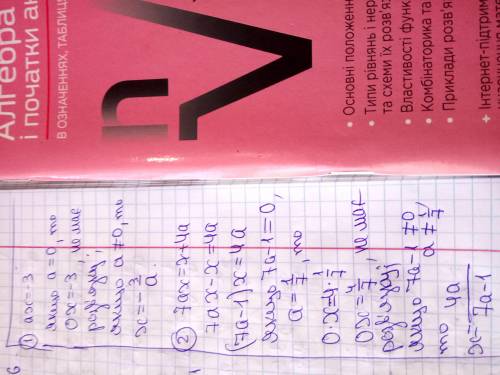 Алгебра
і початки ан
В ОЗНАЧЕННЯХ, ТАБЛИЦЯ
n√
• Основні положенн
• Типи рівнянь і нер
та схеми їх розв'яз
• Властивості функ
• Комбінаторика та
• Приклади розв'я
+ Інтернет-підтрим
6.
① ax=-3
якщо a=0, то
0x=-3, не має
розвязку;
якщо a≠0, то
x=-3/a.
② 7ax=x+4a
7ax-x=4a
(7a-1)x=4a
якщо 7a-1=0,
a=1/7, то
0·x=4·1/7
0x=4/7, не має
розвязку;
якщо 7a-1≠0
a≠1/7,
то
x=4a/7a-1